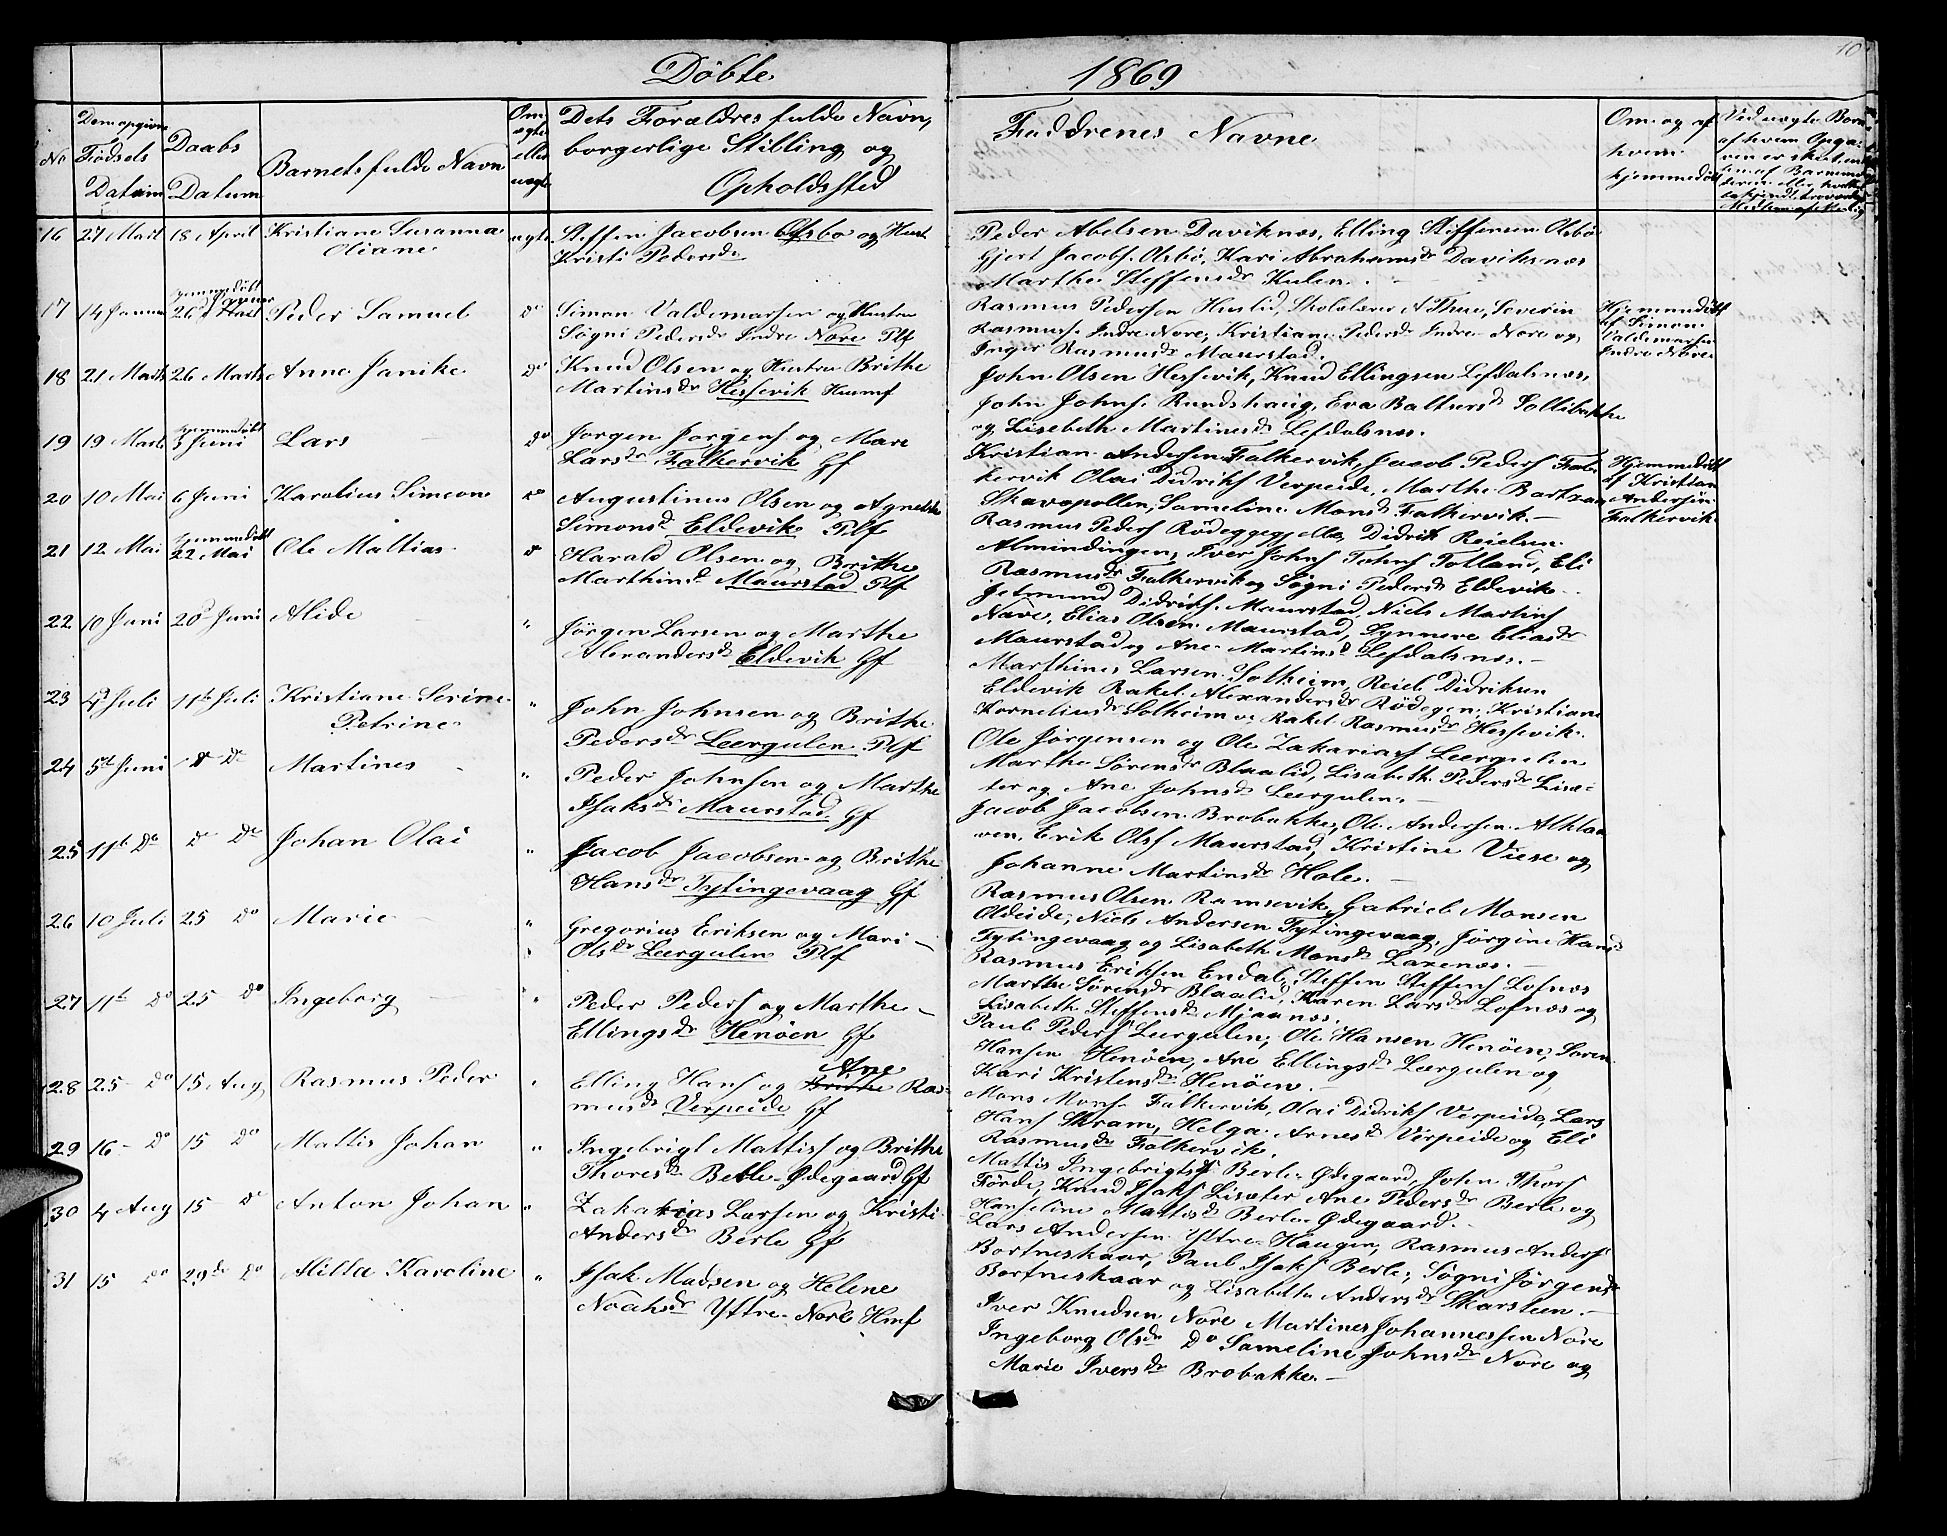 10
Döbte 1869
No
Den opgivne Födsels Datum
Daabs Datum
Barnets fulde Navn
Om ægte eller uægte
Dets Forældres fulde Navn, borgerlige Stilling og Opholdssted
Faddrenes Navne
Om og af hvem hjemmedöbt
16 27 Mart 18 April Kristiane Susanna Oliane ægte Steffen Jacobsen Osbo og Hust
Kristi Pedersdr
Peder Abelsen Daviknæs, Elling Steffensen Osbö
Gjert Jacobs. Osbö, Kari Abrahamsdr Daviknæs
Marthe Steffensdr Kulen.
17 14 Januar 26 Peder Samuel do Simon Valdemarsen og Hustru
Sögni Pedersdr Indre Nore Plf
Rasmus Pedersen Huslid, Skolelærer A Thue, Severin
Rasmuss. Indre Nore, Kristiane Pedersdr Indre Nore og
Inger Rasmusdr Maurstad.
Hjemmedöbt
af Simon
Valdemarsen
Indre Nore
18 21 Marts 26 Marts Anne Janike do Knud Olsen og Hustru Brithe
Martinsdr Hessevik Husmf
John Olsen Hessevik, Knud Ellingsen Lefdalsnæs,
John Johns. Rundshaug, Eva Baltsersd Sollibakke
og Lisebeth Martinesdr Lefdalsnæs.
19 19 Marts hjemmedöbt 3 Juni Lars do Jörgen Jörgens og Mari
Larsdr Falkervik Gf
Kristian Andersen Falkervik, Jacob Peders Fal-
kervik Olai Didriks Verpeide, Marthe
Skavopollen, Sameline Monsd Falkervik.
Hjemmedöbt
af Kristian
Andersen
Falkervik
20 10 Mai 6 Juni Karolius Simeon do Augustinus Olsen og Agnethe
Simonsd Eldevik Plf
Rasmus Peders Didrik Reielsen
Almindingen, Iver Johns Totland, Eli
Rasmusdr Falkervik og Sögni Pedersdr Eldevik
21 12 Mai hjemmedöbt 22 Mai Ole Mattias do Harald Olsen og Brithe
Marthinsd Maurstad Plf
Getmund Didriks. Maurstad, Niels Martins
Nave, Elias Olsen Maurstad, Synneve Eliasdr
Maurstad og Ane Martinsd Lefdalsnæs.
22 10 Juni 20 Juni Alide " Jörgen Larsen og Marthe
Alexandersdr Eldevik Gf
Marthines Larsen Solheim, Reiel Didriksen
Eldevik Rakel Alexandersdr Rödegen, Kristiane
Korneliusdr Solheim og Rakel Rasmusdr Hessevik.
23 4d Juli 11te Juli Kristiane Serine Petrine " John Johnsen og Brithe
Pedersdr Leergulen Plf
Ole Jörgensen og Ole Zakarias Leergulen
Marthe Sörensdr Blaalid, Lisabeth Pedersdr Lisæ-
ter og Ane Johnsdr Leergulen.
24 5te Juni do do Martines " Peder Johnsen og Marthe
Isaksdr Maurstad Gf
Jacob Jacobsen Brobakke, Ole Andersen
Erik Ols Maurstad, Kristine Viese og
Johanne Martinsdr Hole.
25 11te Do do do Johan Olai " Jacob Jacobsen og Brithe
Hansdr Tytingevaag Gf
Rasmus Olsen Ramsevik, Gabriel Monsen
Oldeide, Niels Andersen Tytingevaag, Jörgine Hans
Tytingevaag og Lisabeth Monsdr Laxenæs.
26 10 Juli 25 do Marie " Gregorius Eriksen og Mari
Olsdr Leergulen Plf
Rasmus Eriksen Endal, Steffen Steffens Lofnæs
Marthe Sörensdr Blaalid, Karen Larsdr Lofnæs og
Lisabeth Steffensdr Mjaanæs.
27 11te do 25 do Ingeborg " Peder Peders og Marthe
Ellingsdr Henöen Gf
Paul Peders Leergulen, Ole Hansen Henöen, Sören
Hansen Henöen, Ane Ellingsdr Leergulen og
Kari Kristensdr Henöen.
28 25 do 15 Aug Rasmus Peder " Elling Hans og Brithe Ane Ras-
musdr Verpeide Gf
Mons Mons. Falkervik, Olai Didriks Verpeide, Lars
Hans Skram, Helga Arnesd Verpeide og Eli
Rasmusdr Falkervik.
29 16 do 15 do Mattis Johan " Ingebrigt Mattiss og Brithe
Thoresdr Berle-Ødegaard Gf
Mattis Ingebrigts Berle-Ødegaard, John Thors
Förde, Knud Isaks Lisæter Ane Pedersdr Berle og
Hanseline Mattisdr Berle-Ødegaard.
30 4 Aug 15 do Anton Johan " Zakarias Larsen og Kristi
Andersdr Berle Gf
Lars Andersen Yttre-Haugen, Rasmus Anders
Bortneskaar, Paul Isaks Berle, Sögni Jörgensdr
Bortneskaar og Lisabeth Andersdr Skarsteen.
31 15 do 29de do Milla Karoline " Isak Madsen og Helene
Noahsdr Yttre-Nore Hmf
Iver Knudsen Nore Martines Johannessen Nore
Ingeborg Olsdr Do Sameline Johnsdr Nore og
Marie Iversdr Brobakke.